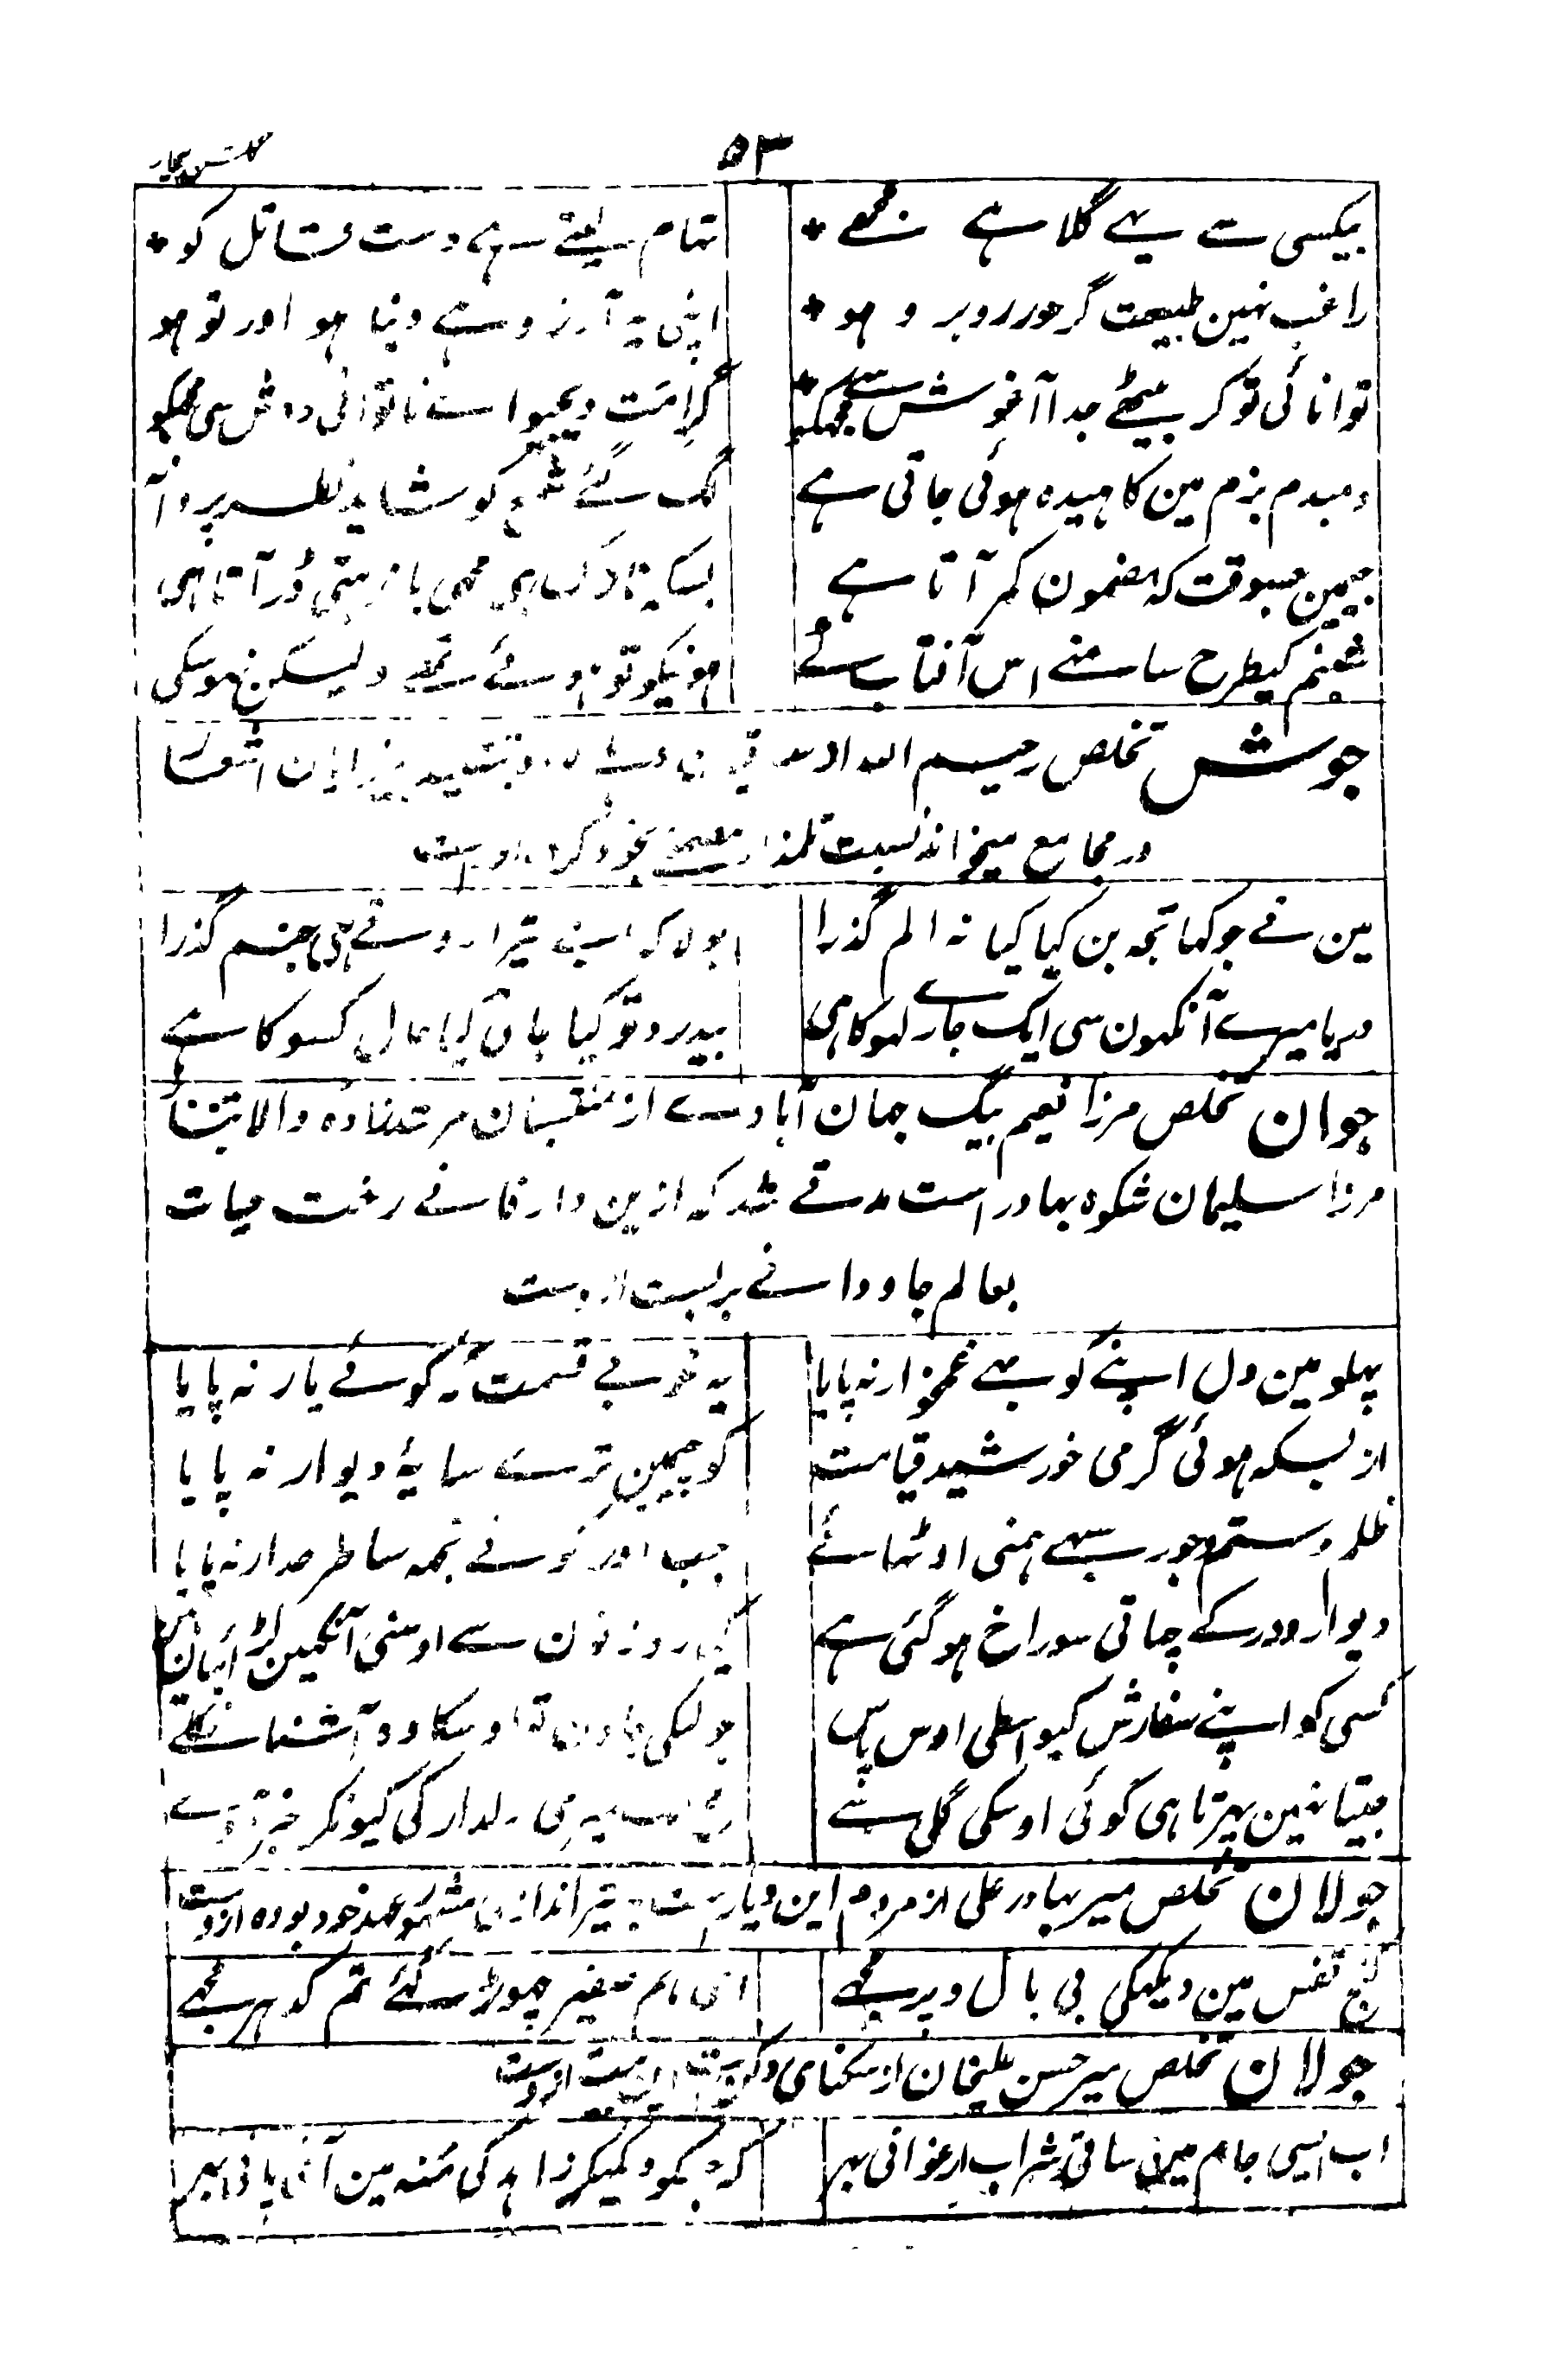 ۵۳
گلشن بیخار
بیکسی سے یہے گلا ہے مجھے
تھام لیتے ہے دست قاتل کو
راغب نہین طبیعت گر حور روبرو ہو
اپنی یہ آرزو ہے دنیا ہو اور تو ہو
توانائی تو کر بیٹھے جدا آغوش سے مجھکو
گرامت دیجیو اے ناتوانی دوش سی مجھکو
دمبدم بزم مین کاہیدہ ہوئی جاتی ہے
لگ گئے شمع کو شاید نظر پروانہ
جیمین جسوقت کہ مضمون کمر آتا ہے
شبنم کیطرح سامنے اس آفتاب کے
ہونیکو تو ہوئے تھے ولیکن نہوسکی
جوش تخلص رحیم اللہ
در مجامع میخواند نسبت تلمذ مصحفے بخود
مین نے جو کہا تجھ بن کیا کیا نہ الم گذرا
بولا کہ ابے تیرا روتے ہی جنم گذرا
دریا میرے آنکھون سی ایک جارے لہو کا ہی
بیدرد تو کیا جانے کیا حال کسو کا ہے
جوان تخلص مرزا نعیم بیگ جہان آبادے از منتسبان مرشدزادہ والا تبار
مرزا سلیمان شکوہ بہادر است مدتے شد کہ ازین دار فانے رخت حیات
بعالم جاودانے بربست ازوست
پہلو مین دل اپنے کو بھے غمخوار نہ پایا
یہ خوبے قسمت کہ کوئے یار نہ پایا
از بسکہ ہوئی گرمی خورشید قیامت
کوچیمین ترے سایۂ دیوار نہ پایا
ظلم و ستم و جور سبہے ہمنی اوٹھائے
جب اور نو نے تجھ سا طرحدار نہ پایا
دیوار و در کے چھاتی سوراخ ہو گئی ہے
روزنون سے اوسنی آنکھین لڑائیان ہین
کسی کو اپنے سفارش کیواسطی اوس پاس
جو لیکی جاون تو اوسکا وہ آشنا نکلے
جیتا نہین پھرتا ہی کوئی اوسکی گلی سے
دلدار کی کیونکر خبر آوے
جولان تخلص میر بہادر علی از مردم این دیار است بہ تیراندازی مشہور عہد خود بودہ ازوست
کنج قفس مین دیکھکی بی بال و پر مجھے
ای ہم صفیر چھوڑ گئے تم کدہر مجھے
جولان تخلص میر حسن علیخان از سکنای دکن است ازوست
اب ایسی جام مین ساقی شراب ارغوانی بھر
کہ جسکو دیکھکر زاہد کی منہ مین آئی پانی بھر